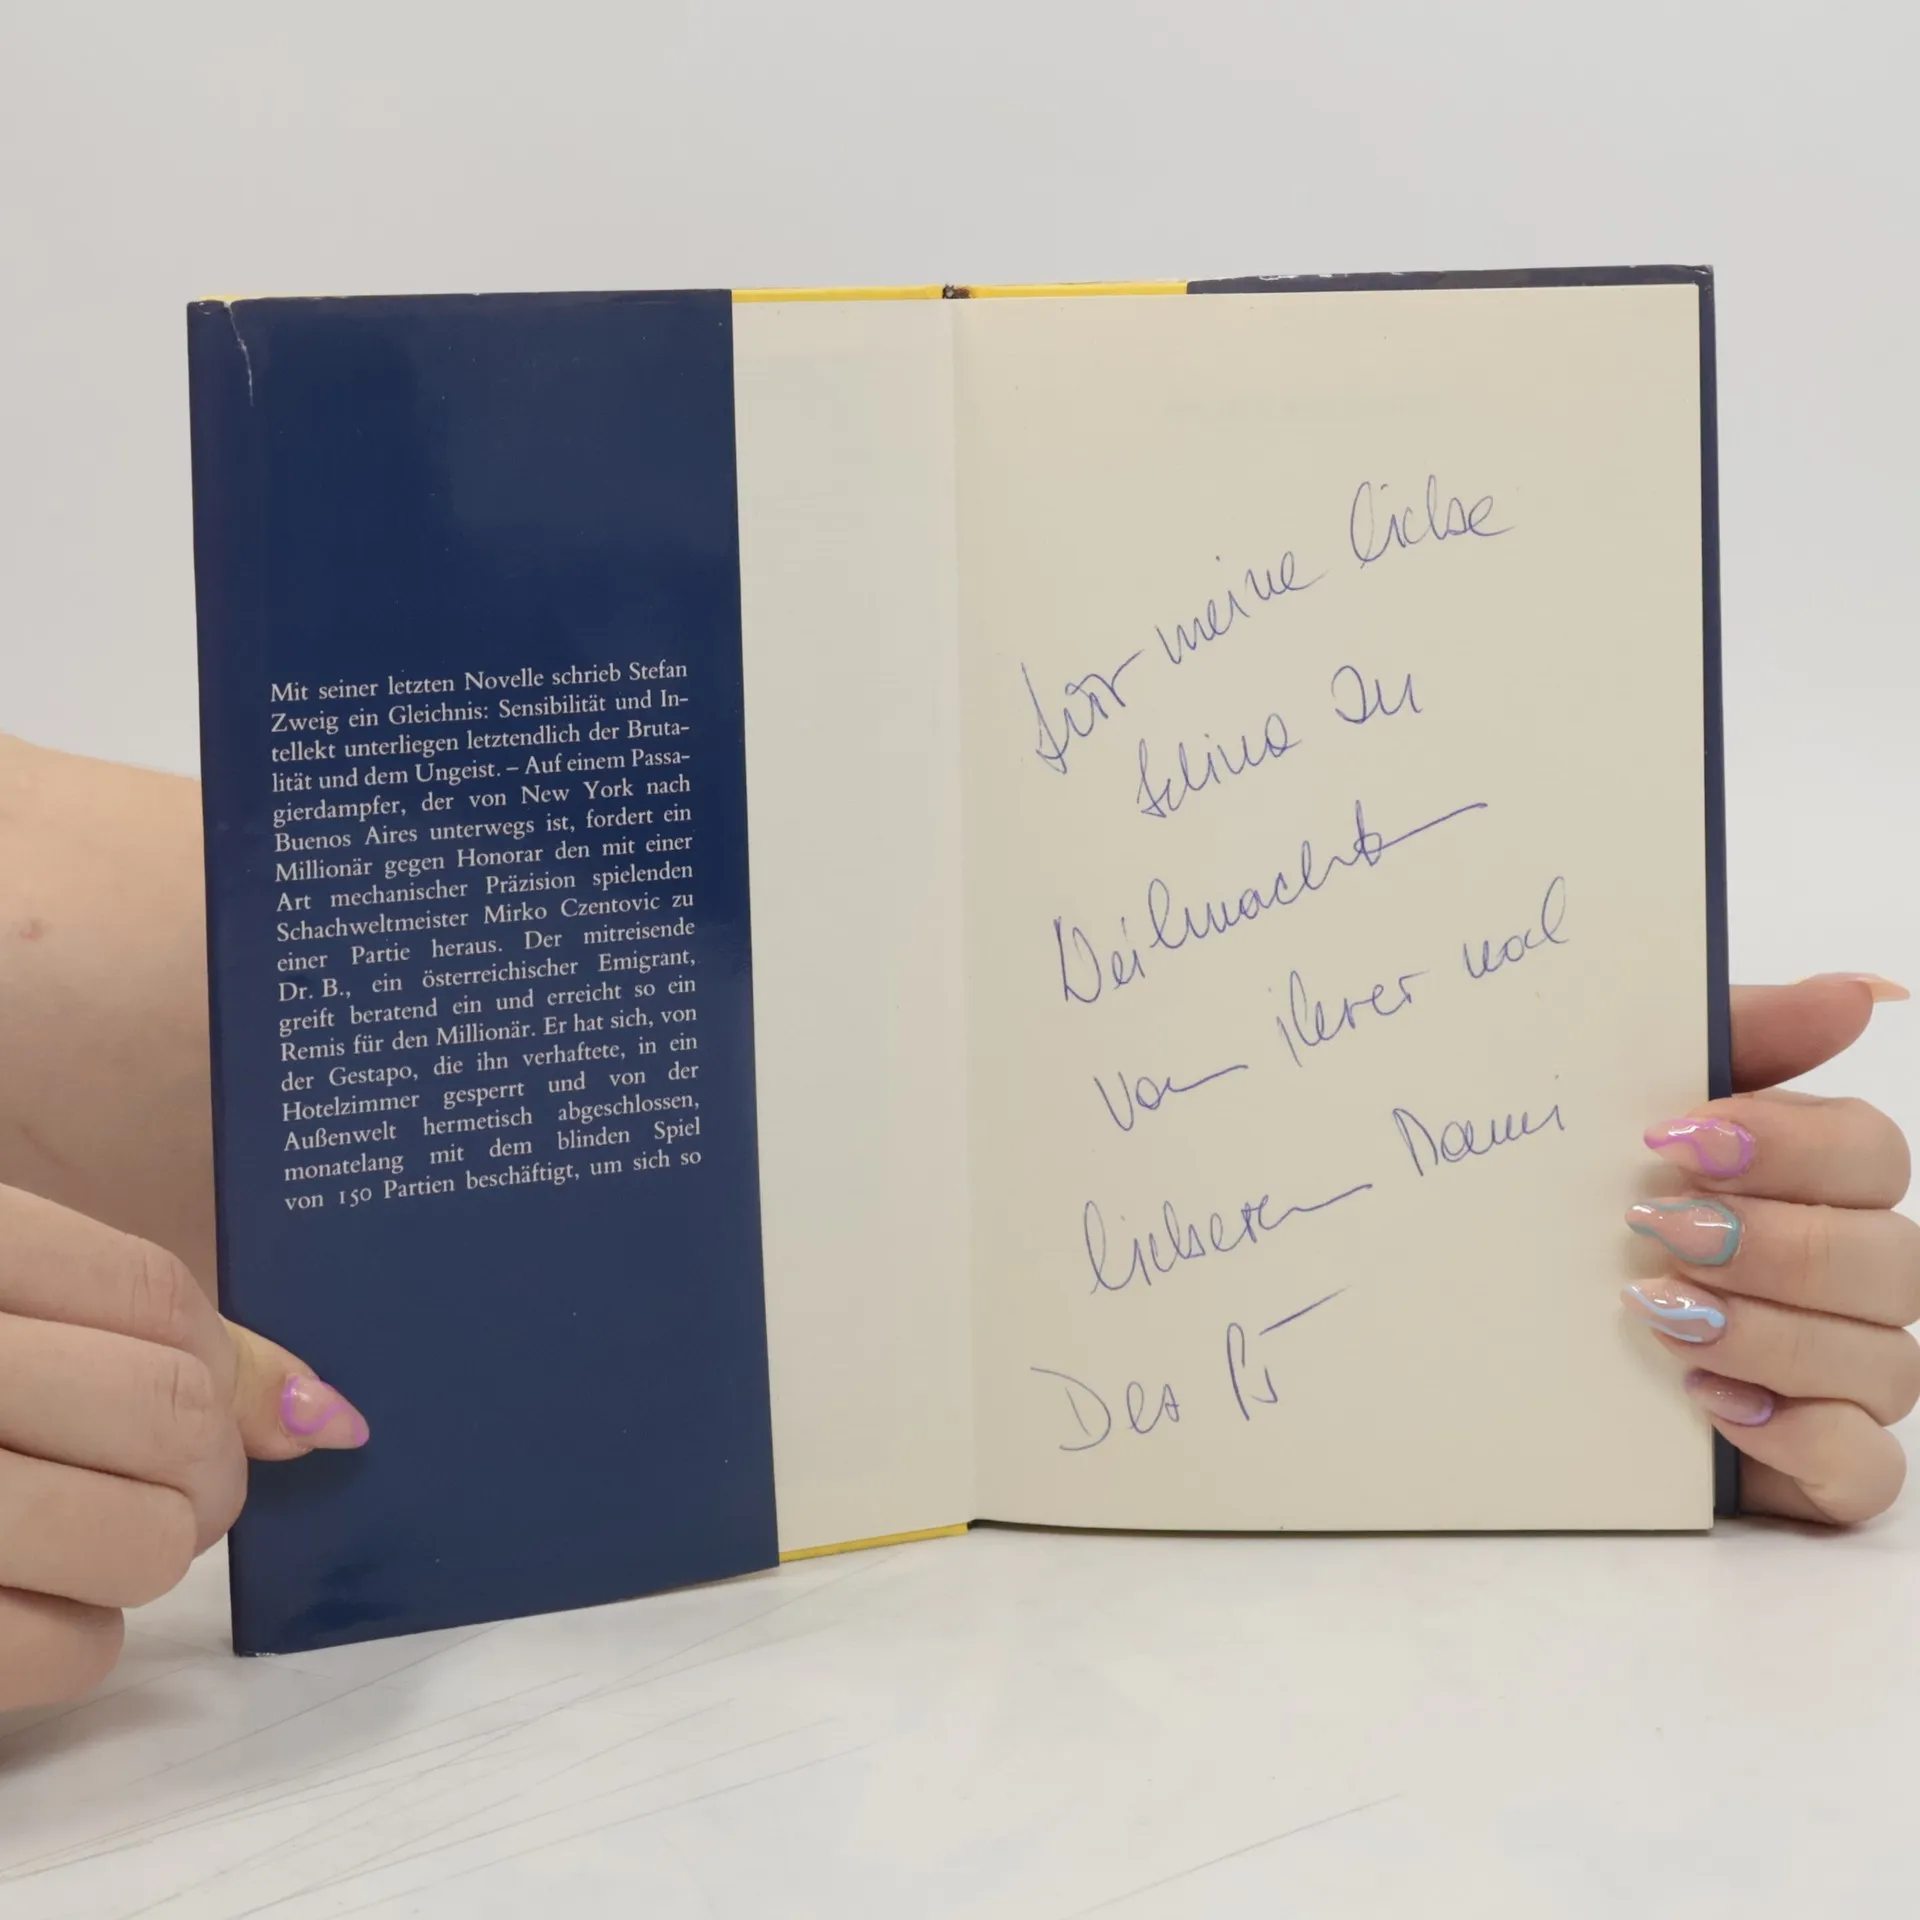 Mit seiner letzten Novelle schrieb Stefan
Zweig ein Gleichnis: Sensibilität und In-
tellekt unterliegen letztendlich der Bruta-
lität und dem Ungeist. – Auf einem Passa-
gierdampfer, der von New York nach
Buenos Aires unterwegs ist, fordert ein
Millionär gegen Honorar den mit einer
Art mechanischer Präzision spielenden
Schachweltmeister Mirko Czentovic zu
einer Partie heraus. Der mitreisende
Dr. B., ein österreichischer Emigrant,
greift beratend ein und erreicht so ein
Remis für den Millionär. Er hat sich, von
der Gestapo, die ihn verhaftete, in ein
Hotelzimmer gesperrt und von der
Außenwelt hermetisch abgeschlossen,
monatelang mit dem blinden Spiel
von 150 Partien beschäftigt, um sich so
Für meine liebe
zu
Weihnachten
von ihrer noch
lieberen Mami
Dez